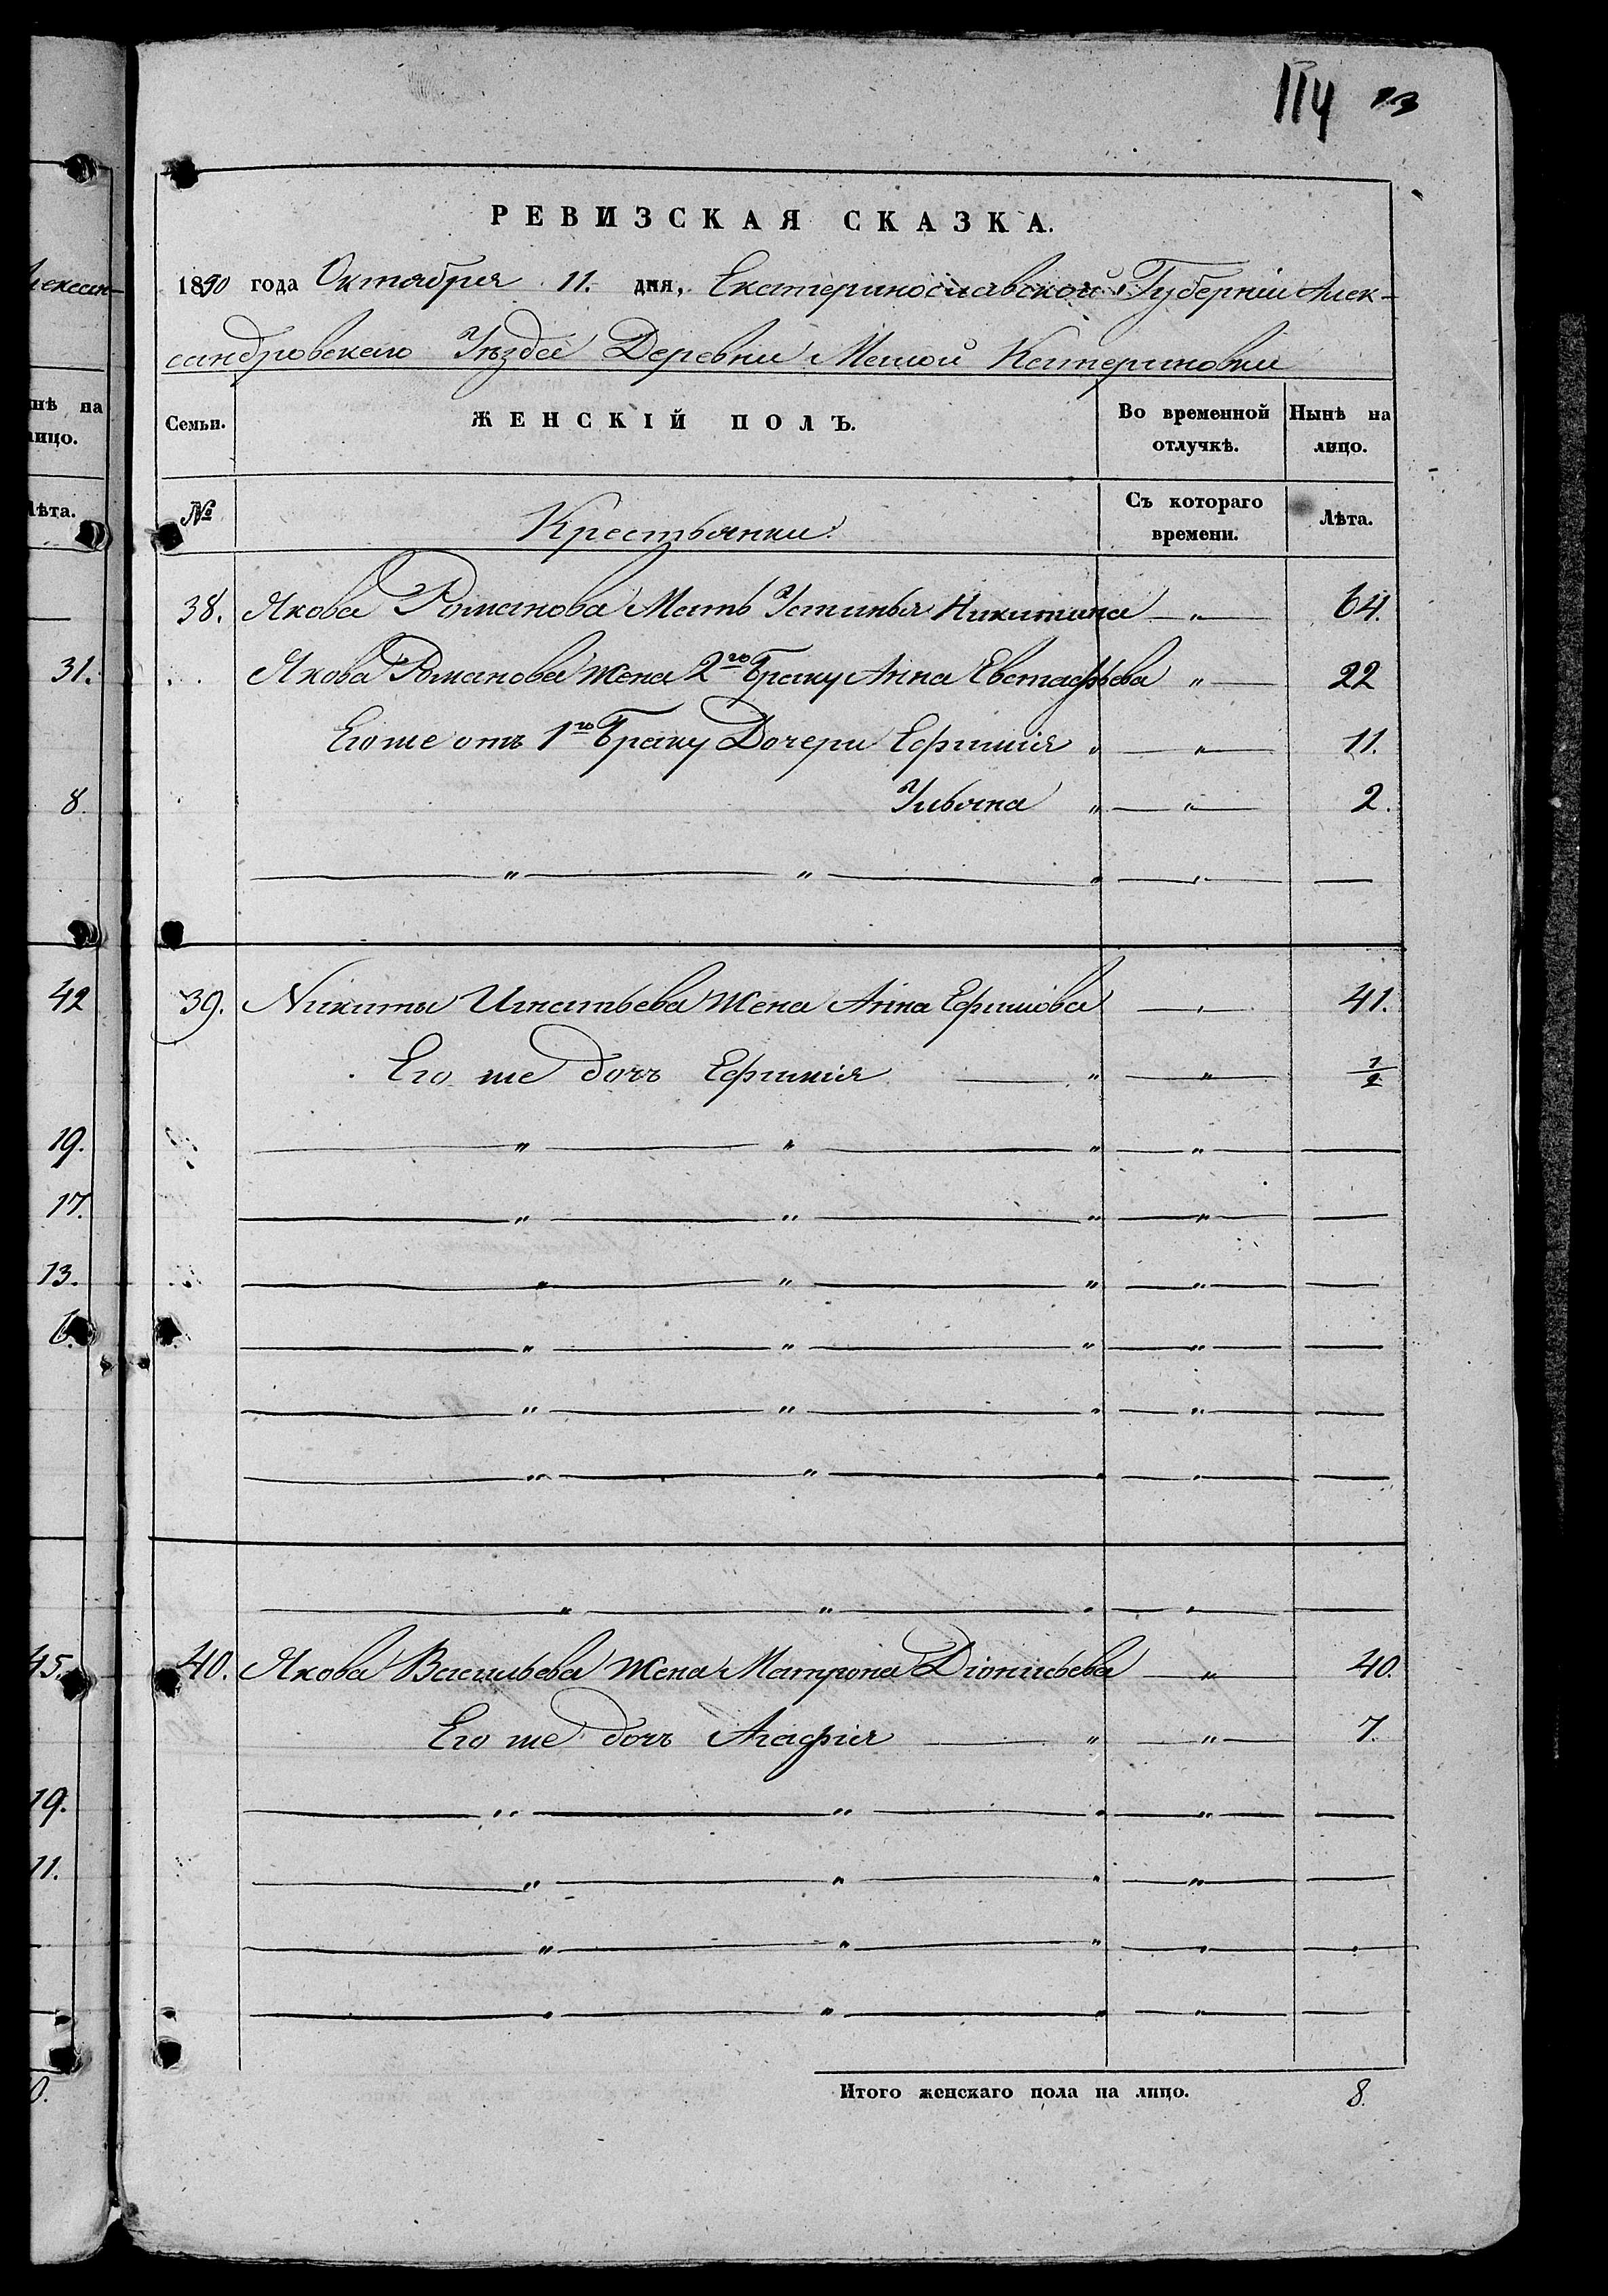 114 13
екаан-
нѣ на
лицо.
Лѣта.
31.
8.
42
19.
17.
13.
6.
45.
19.
11.
0.
РЕВИЗСКАЯ СКАЗКА.
1850 года Октября 11. дня, Екатеринославской Губерніи Алек-
сандровского Уѣзда Деревни Малой Катериновки
Семьи. ЖЕНСКІЙ ПОЛЪ. Во временной отлучкѣ. Нынѣ на лицо.
№ Крестьянки: Съ котораго времени. Лѣта.
38. Якова Романова Мать Устинья Никитина — „ — 64.
Якова Романова жена 2го Браку Анна Евстафьева „ — 22
Его же отъ 1го Браку Дочери Ефимія „ — „ — 11.
Ульяна „ — „ — 2.
— „ — „ — „ — „ — —
39. Никиты Игнатьева жена Анна Ефимова — „ — 41.
Его же дочь Ефимія — „ — „ — 1/2
— „ — „ — „ — „ — —
— „ — „ — „ — „ — —
— „ — „ — „ — „ — —
— „ — „ — „ — „ — —
— „ — „ — „ — „ — —
— „ — „ — „ — „ — —
— „ — „ — „ — „ — —
40. Якова Васильева жена Матрона Діонисьева — „ — 40.
Его же дочь Агафія — „ — „ — 7.
— „ — „ — „ — „ — —
— „ — „ — „ — „ — —
— „ — „ — „ — „ — —
— „ — „ — „ — „ — —
Итого женскаго пола на лицо. 8.